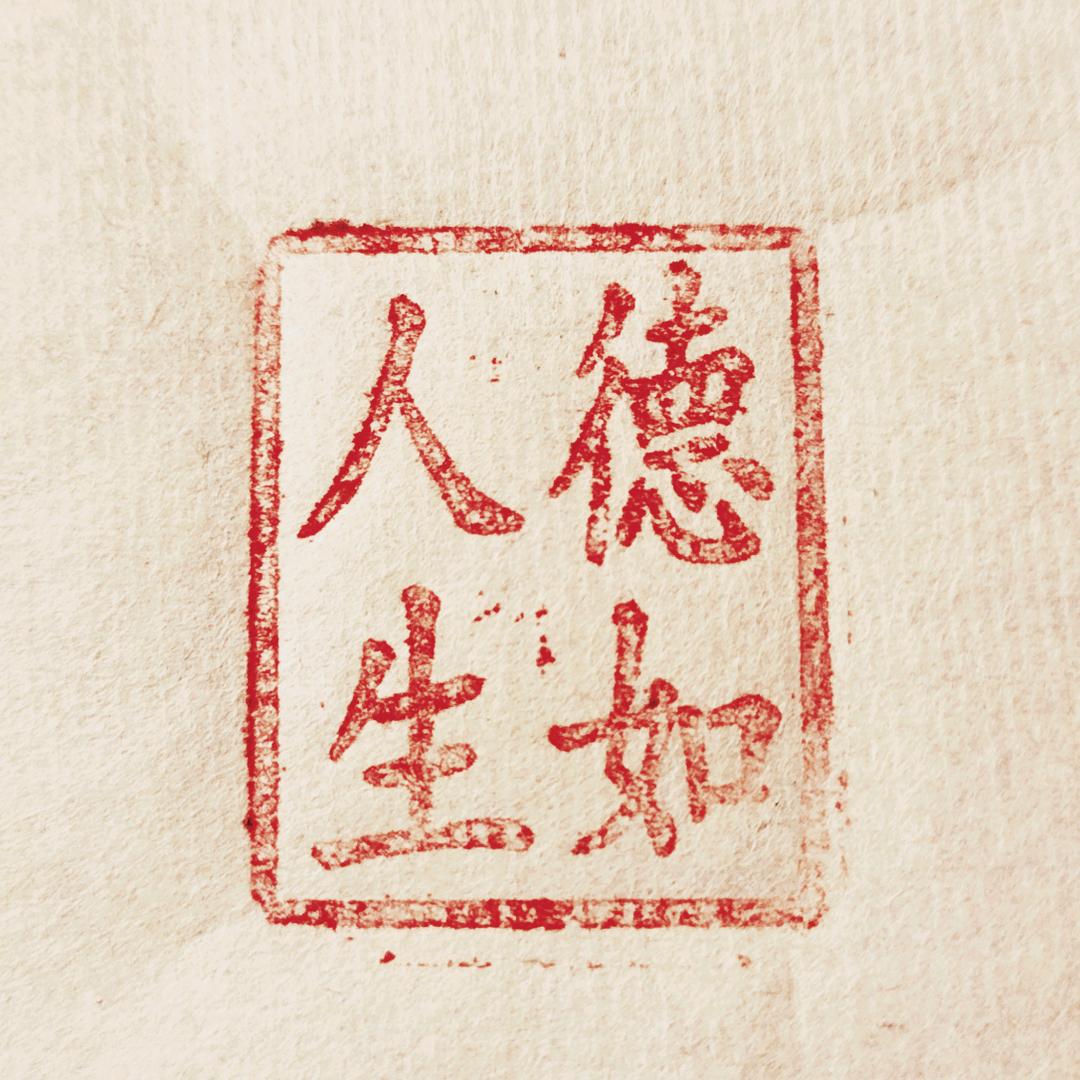 德如
人生